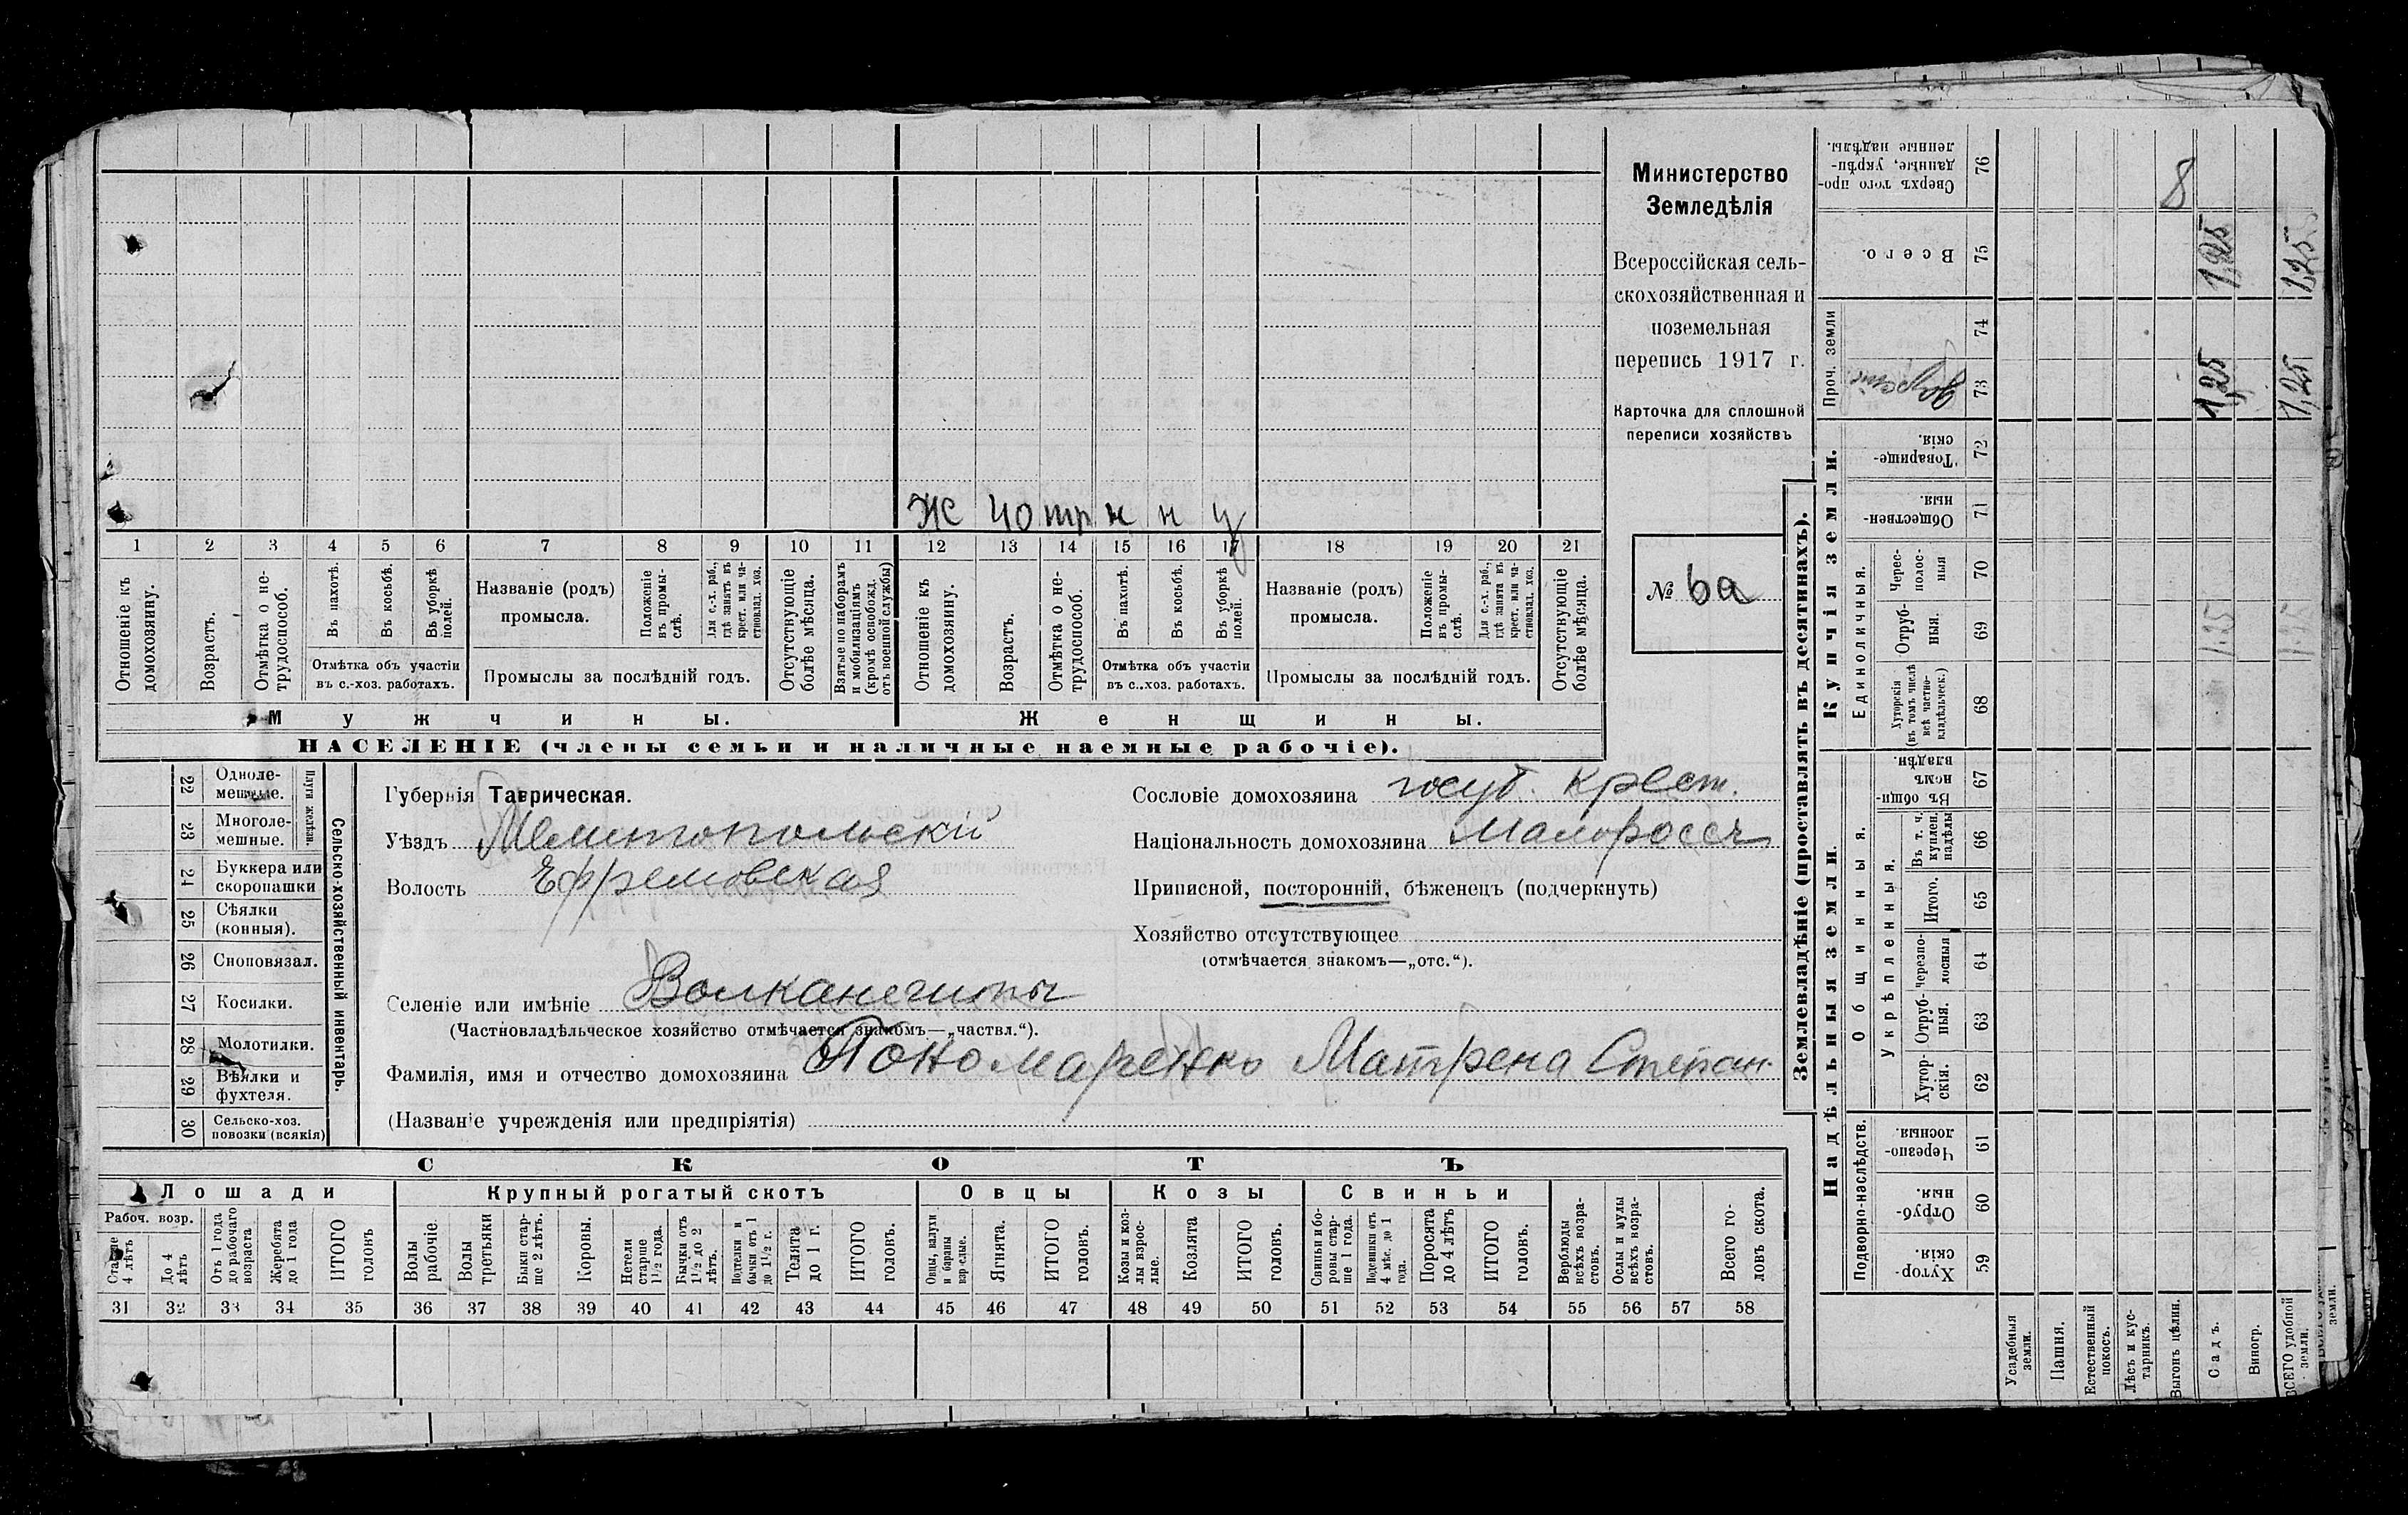 Министерство
Земледѣлія
Всероссійская сель-
скохозяйственная и
поземельная
перепись 1917 г.
Карточка для сплошной
переписи хозяйствъ
№ 6а
Ж 40 тр н н у
1 2 3 4 5 6 7 8 9 10 11 12 13 14 15 16 17 18 19 20 21
Отношеніе къ домохозяину.
Возрастъ.
Отмѣтка о не-трудоспособ.
Въ пахотѣ.
Въ косьбѣ.
Въ уборкѣ полей.
Отмѣтка объ участіи въ с.-хоз. работахъ.
Названіе (родъ) промысла.
Положеніе въ промы-слѣ.
Для с.-х. раб., гдѣ занятъ въ крест. или ча-стновлад. хоз.
Промыслы за послѣдній годъ.
Отсутствующіе болѣе мѣсяца.
Взятые по наборамъ и мобилизаціямъ (кромѣ освобожд. отъ военной службы)
Отношеніе къ домохозяину.
Возрастъ.
Отмѣтка о не-трудоспособ.
Въ пахотѣ.
Въ косьбѣ.
Въ уборкѣ полей.
Отмѣтка объ участіи въ с..хоз. работахъ.
Названіе (родъ) промысла.
Положеніе въ промы-слѣ.
Для с.-х. раб., гдѣ занята въ крест. или ча-стновлад. хоз.
Промыслы за послѣдній годъ.
Отсутствующіе болѣе мѣсяца.
Мужчины. Женщины.
НАСЕЛЕНІЕ (члены семьи и наличные наемные рабочіе).
22 Одноле-мешные.
23 Многоле-мешные.
Плуги желѣзн.
24 Буккера или скоропашки
25 Сѣялки (конныя).
26 Сноповязал.
27 Косилки.
28 Молотилки.
29 Вѣялки и фухтеля.
30 Сельско-хоз. повозки (всякія)
Сельско-хозяйственный инвентарь.
Губернія Таврическая.
Уѣздъ Мелитопольскій
Волость Ефремовская
Сословіе домохозяина госуд. крест.
Національность домохозяина Малоросс
Приписной, посторонній, бѣженецъ (подчеркнуть)
Хозяйство отсутствующее
(отмѣчается знакомъ—„отс.“).
Селеніе или имѣніе
(Частновладѣльческое хозяйство отмѣчается знакомъ—„частвл.“).
Фамилія, имя и отчество домохозяина Пономаренко Матрена Степан.
(Названіе учрежденія или предпріятія)
СКОТЪ
Лошади Крупный рогатый скотъ Овцы Козы Свиньи
Рабоч. возр.
Старше 4 лѣтъ
До 4 лѣтъ
Отъ 1 года до рабочаго возраста
Жеребята до 1 года
ИТОГО головъ
Волы рабочіе
Волы третьяки
Быки стар-ше 2 лѣтъ.
Коровы.
Нетели старше 1½ года.
Бычки отъ 1½ до 2 лѣтъ.
Подтелки и бычки отъ 1 до 1½ г.
Телята до 1 г.
ИТОГО головъ.
Овцы, валухи и бараны взрослые.
Ягнята.
ИТОГО головъ.
Козы и коз-лы взрос-лые.
Козлята
ИТОГО головъ.
Свиньи и бо-ровы стар-ше 1 года.
Подсвинки отъ 4 мѣс. до 1 года.
Поросята до 4 лѣтъ
ИТОГО головъ.
Верблюды всѣхъ возра-стовъ.
Ослы и мулы всѣхъ возра-стовъ.
Всего го-ловъ скота.
31 32 33 34 35 36 37 38 39 40 41 42 43 44 45 46 47 48 49 50 51 52 53 54 55 56 57 58
Землевладѣніе (проставлять въ десятинахъ).
Купчія земли.
Надѣльныя земли.
Сверхъ того про-данные, укрѣп-ленные надѣлы. 76 8
Всего. 75 1,25 1,25
Проч. земли
74
73 1,25 1,25
Товарище-скія. 72
Обществен-ныя. 71
Единоличныя.
Черес-полос-ныя 70
Отруб-ныя. 69 1.25 1.25
Хуторскія (въ томъ числѣ всѣ частно-владѣльческ.) 68
Общинныя.
Въ общи-номъ владѣн. 67
Укрѣпленныя.
Въ т. ч. куплен. надѣлы 66
Итого. 65
Черезпо-лосныя 64
Отруб-ныя. 63
Хутор-скія. 62
Подворно-наслѣдств.
Черезпо-лосныя. 61
Отруб-ныя. 60
Хутор-скія. 59
Усадебныя земли.
Пашня.
Естественный покосъ.
Лѣсъ и кус-тарникъ.
Выгонъ цѣлин.
Садъ.
Виногр.
ВСЕГО удобной земли.